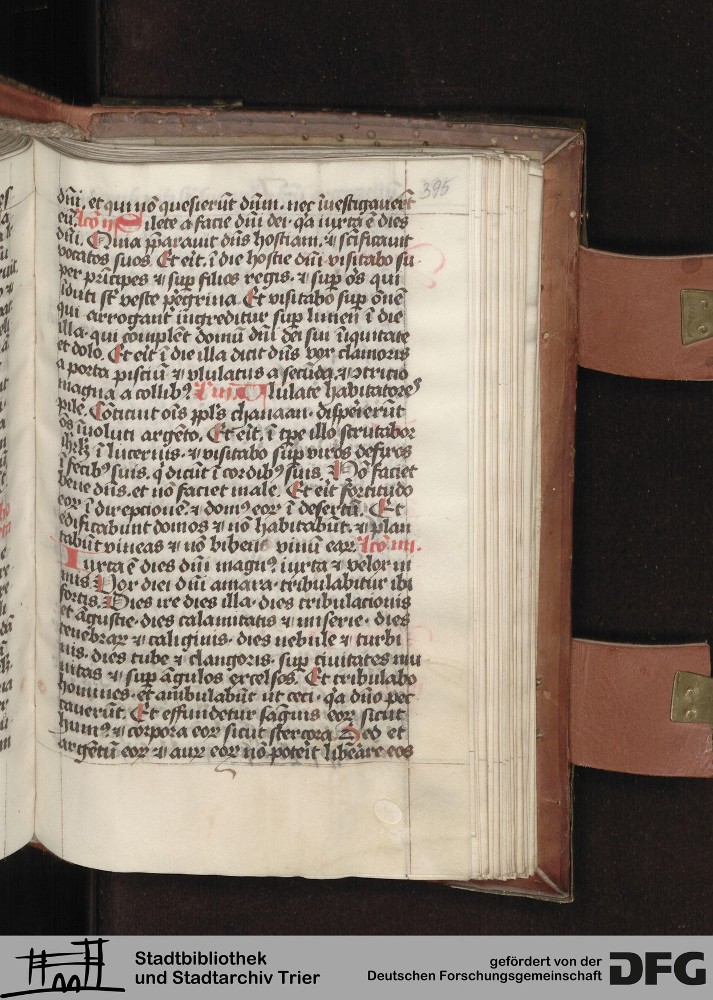 395
dñi, et qui nõ quesierũt dñm. nec ĩuestigauerũt
eũ. Lcõ ij Silete a facie dñi dei. qa iuxta ẽ dies
dñi. Quia pparauit dñs hostiam. ⁊ scĩficauit
vocatos suos. Et eĩt. ĩ die hostie dñi visitabo su
per prĩcipes ⁊ sup filios regis. ⁊ sup oẽs qui
ĩduti sũt veste peregrina. Et visitabo sup õnẽ
qui arrogant ingreditur sup limen ĩ die
illa. qui complẽt domũ dñi dei sui ĩiquitate
et dolo. Et eĩt ĩ die illa dicit dñs vox clamoris
a porta pisciũ ⁊ vlulatus a secũda. ⁊ ↄtritio
magna a collibꝰ. Vlulate habitatores
pile. Cõticuit oĩs ppls chanaan. disperierũt
oẽs ĩuoluti argẽto. Et eĩt. ĩ tpe illo scrutabor
ihrlm ĩ lucernis. ⁊ visitabo sup viros defixos
ĩ fecibꝰ suis. q dicũt ĩ cordibꝰ suis. Nõ faciet
bene dñs. et nõ faciet male. Et eĩt fortitudo
eoꝝ ĩ direpcionẽ. ⁊ domꝰ eoꝝ ĩ desertũ. Et
edificabunt domos ⁊ nõ habitabũt. ⁊ plan
tabũt vineas ⁊ nõ bibent vinũ eaꝝ. Lcõ iiij.
Iuxta ẽ dies dñi magnꝰ. iuxta ⁊ velox ni
mis. Vox diei dñi amara. tribulabitur ibi
fortis. Dies ire dies illa. dies tribulacionis
et ãgustie. dies calamitatis ⁊ miserie. dies
tenebraꝝ ⁊ caliginis. dies nebule ⁊ turbi
nis. dies tube ⁊ clangoris. sup ciuitates mu
nitas ⁊ sup ãgulos excelsos. Et tribulabo
homines. et ambulabũt ut ceci. qa dño pec
cauerũt. Et effundetur sãguis eoꝝ sicut
humꝰ. ⁊ corpora eoꝝ sicut stercora. Sed et
argẽtũ eoꝝ ⁊ auꝝ eoꝝ nõ poterit liberare eos
Stadtbibliothek
und Stadtarchiv Trier
gefördert von der
Deutschen Forschungsgemeinschaft
DFG